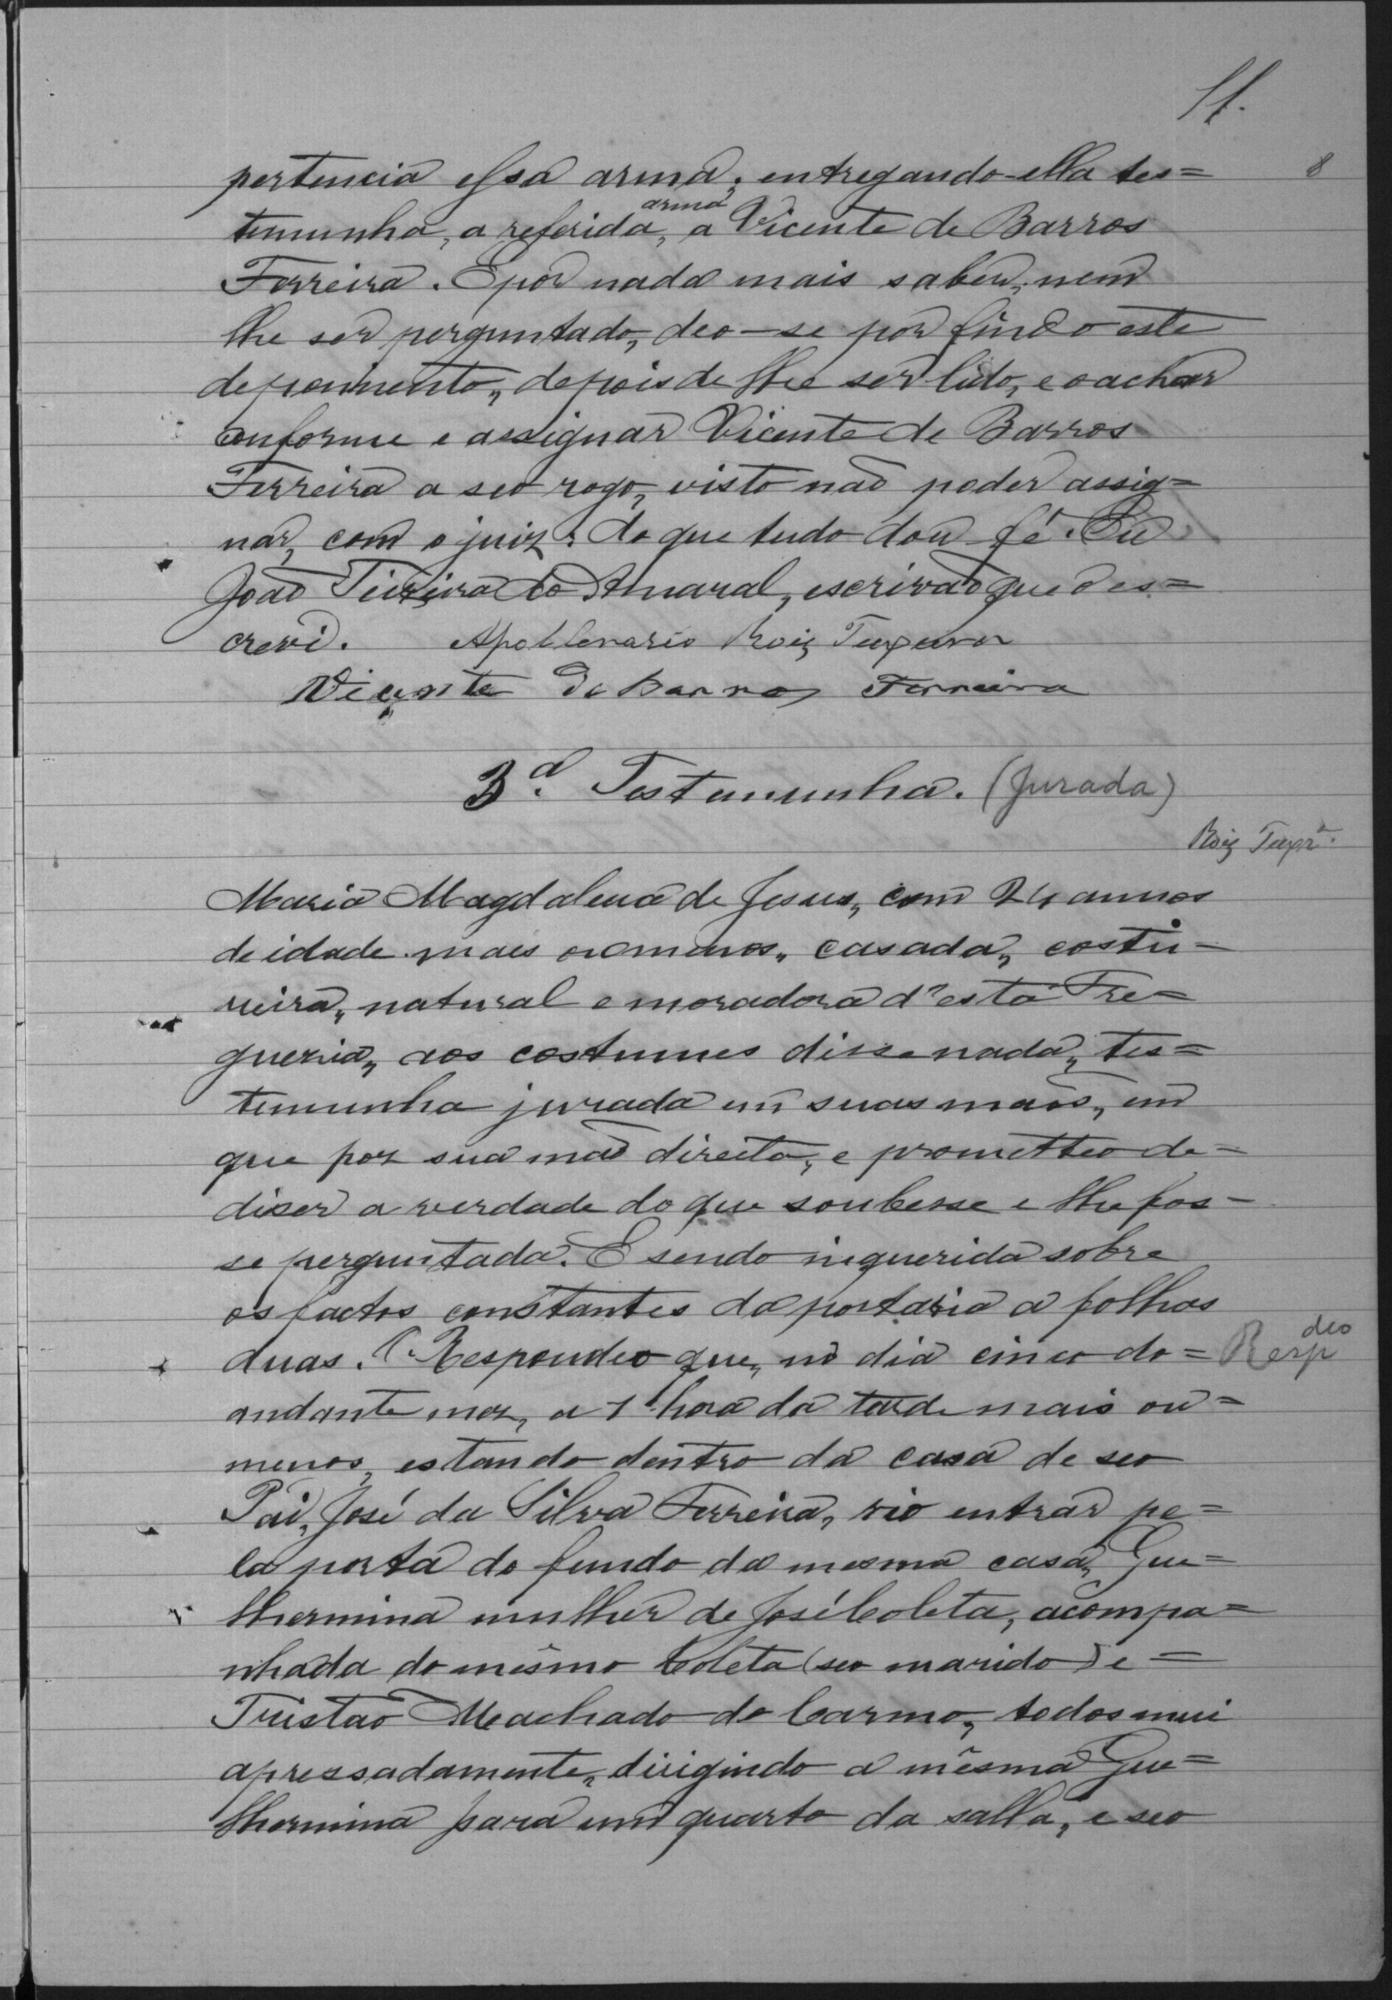 11.
8
pertencia essa arma; entregando ella tes=
temunha, a referida, arma a Vicente de Barros
Ferreira. E por nada mais saber, nem
lhe ser perguntado, deo-se por findo este
depoimento, depois de lhe ser lido, e o achar
conforme e assignar Vicente de Barros
Ferreira a seo rogo, visto não poder assig=
nar, com o juiz: do que tudo dou fé. Eu
João Teixeira do Amaral, escrivão que o es=
crevi. Apollenario Roiz Teixeira
Vicente de Barros Ferreira
3.ª Testemunha. (Jurada)
Roiz Teixrª.
Maria Magdalena de Jesus, com 24 annos
de idade mais ou menos, casada, costu-
reira, natural e moradora d'esta Fre=
guezia, aos costumes disse nada, tes=
temunha jurada em suas mãos, em
que poz sua mão direita, e prometteo de=
diser a verdade do que soubesse e lhe fos-
se perguntada. E sendo inquerida sobre
os factos constantes da portaria a folhas
duas. Respondeo que, no dia cinco do=
Respdeo
andante mez, a 1 hora da tarde mais ou=
menos, estando dentro da casa de seo
Pai, José da Silva Ferreira, vio entrar pe=
la porta do fundo da mesma casa, Gue=
lhermina mulher de José Coleta, acompa=
nhada do mêsmo Coleta (seo marido) e=
Tristão Machado do Carmo, todos mui
apressadamente, dirigindo a mêsma Gue=
lhermina para um quarto da salla, e seo